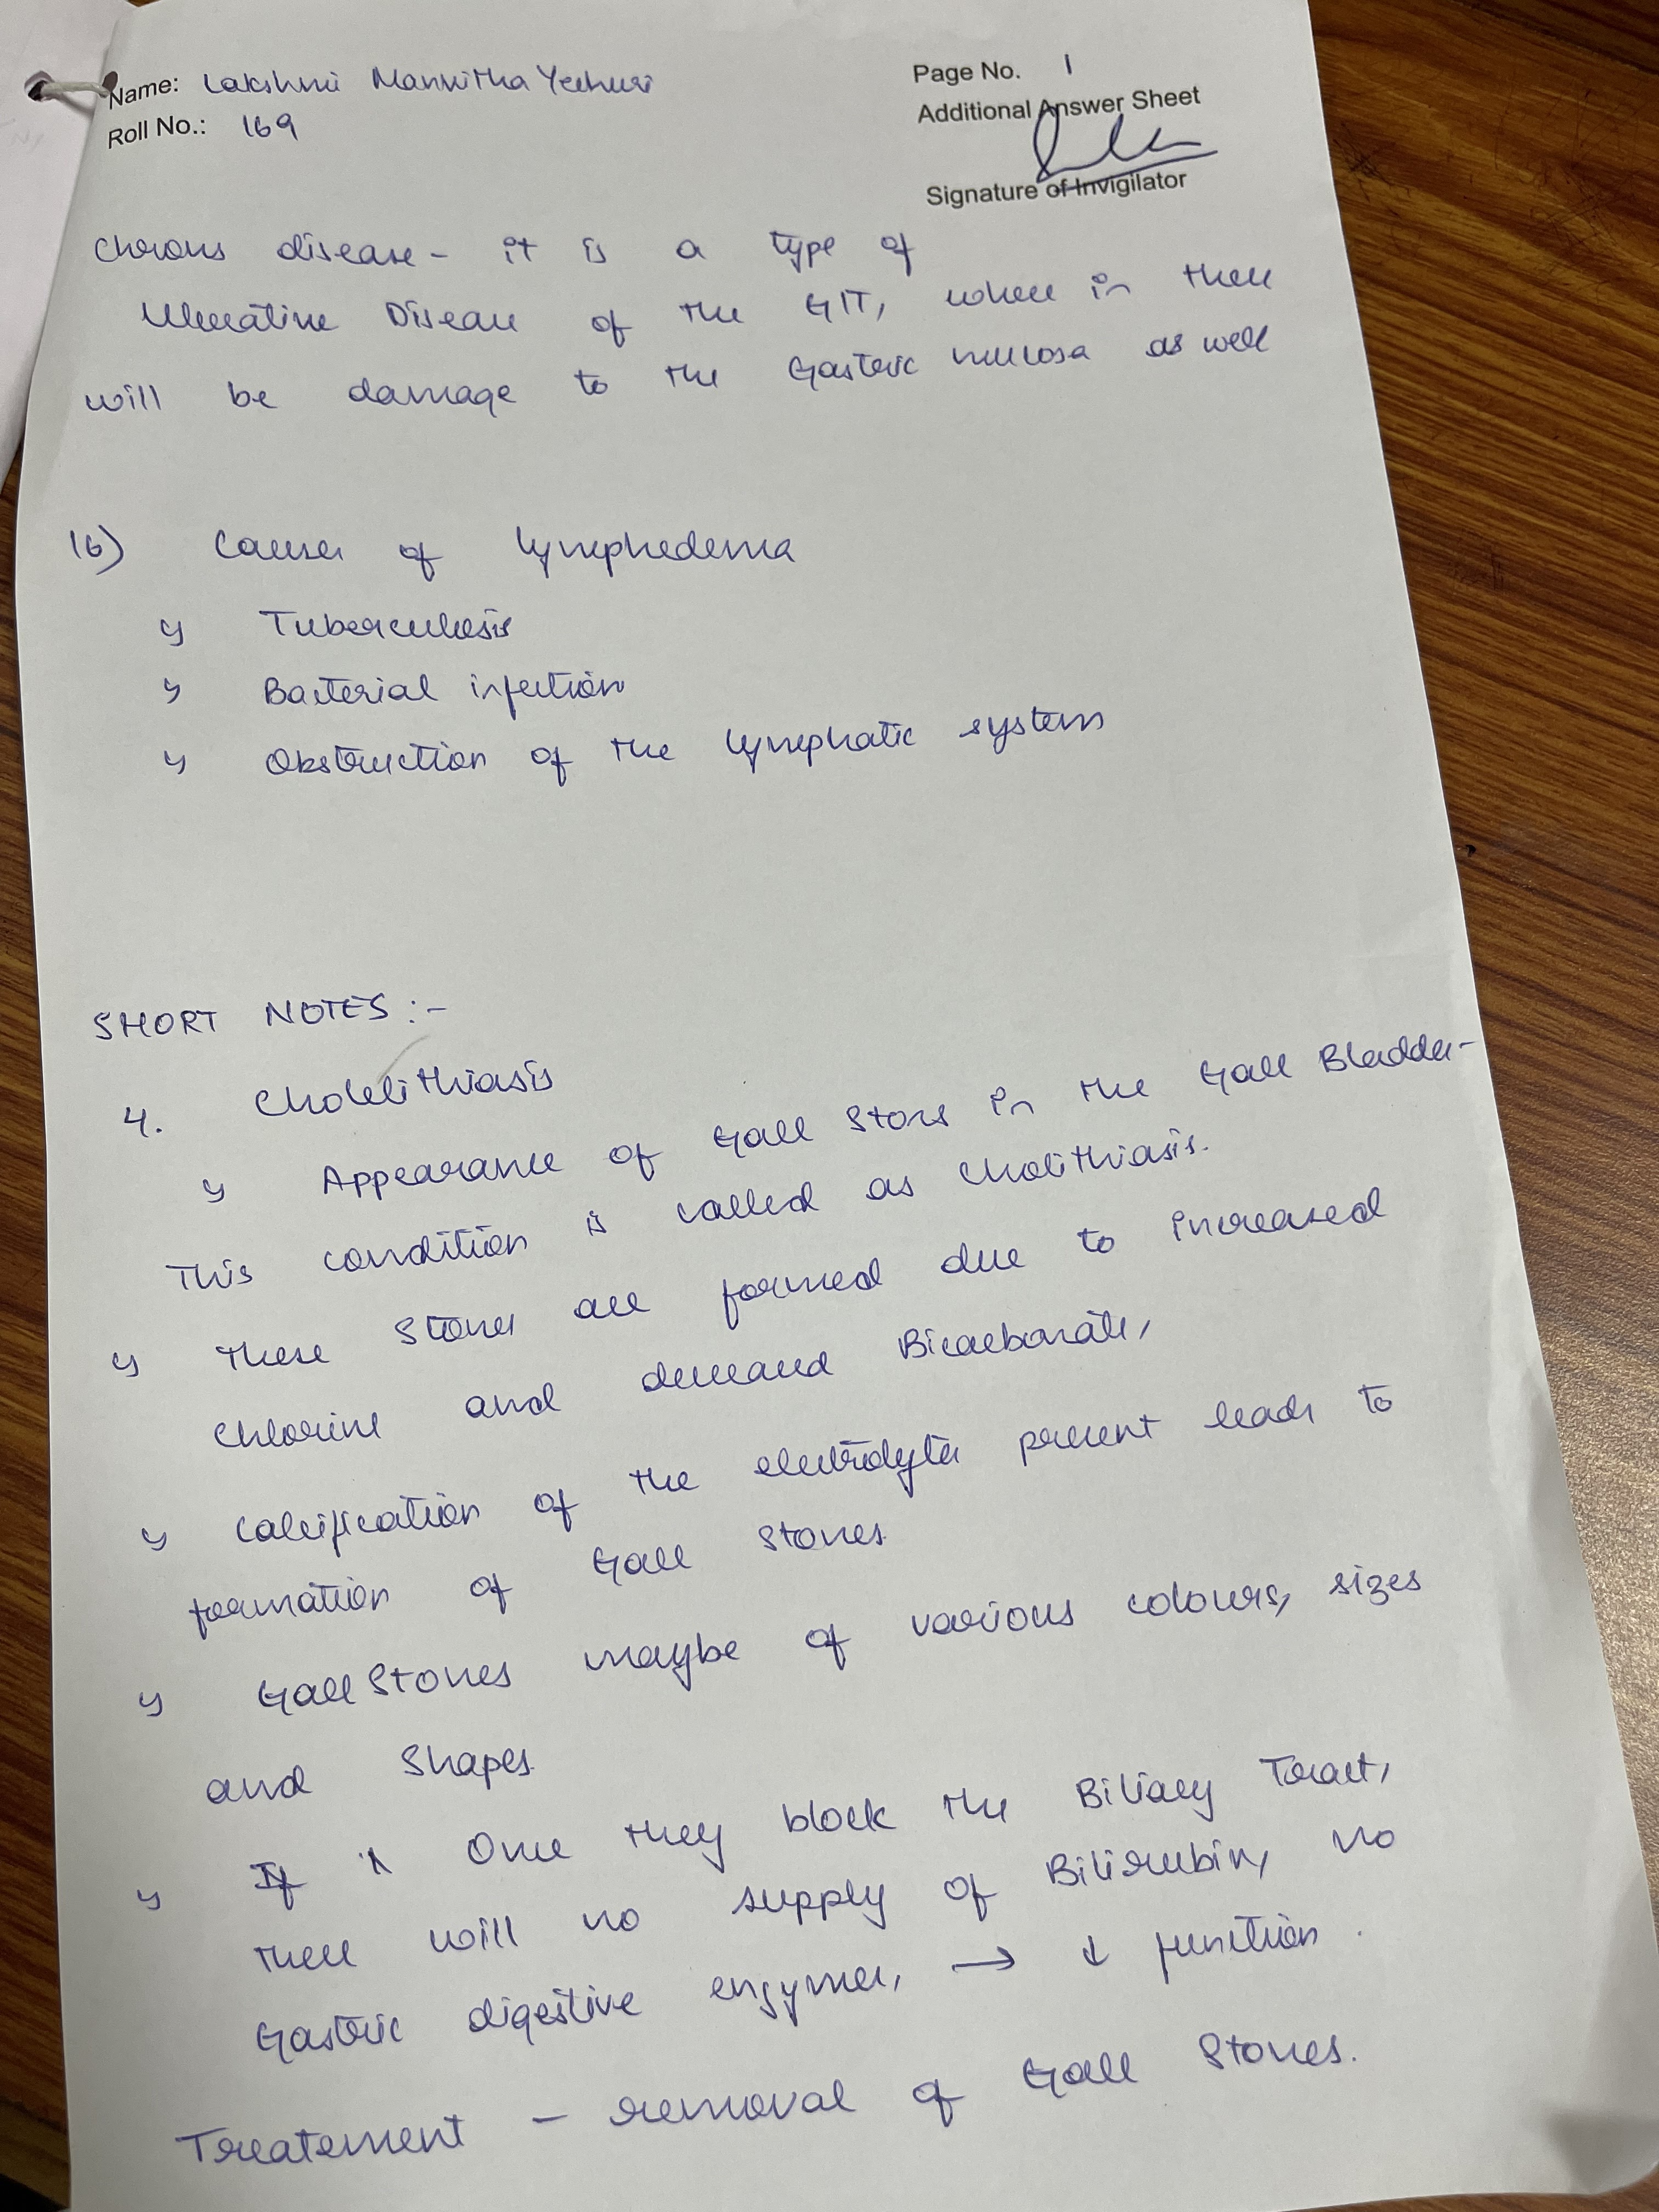 Name: Lakshmi Mannitha Yeehuri
Page No. 1
Roll No.: 169
Additional Answer Sheet
Signature of Invigilator
Chrons disease - it is a type of
Ulcerative Disease of the GIT, where in there
will be damage to the Gasteric mucosa as well
16) Causes of lymphedema
Tuberculosis
Bacterial infection
Obstruction of the lymphatic system
SHORT NOTES :-
4. Cholelithiasis
Appearance of Gall Stons in the Gall Bladder-
This condition is called as Cholithiasis.
These Stones are formed due to increased
Chlorine and decreased Bicarbonate,
Calcification of the electrolytes present leads to
formation of Gall Stones
Gall Stones maybe of various colours, sizes
and Shapes.
If Once they block the Biliary Tract,
there will no supply of Bilirubin, no
Gastric digestive enzymes, → ↓ function.
Treatement - removal of Gall Stones.